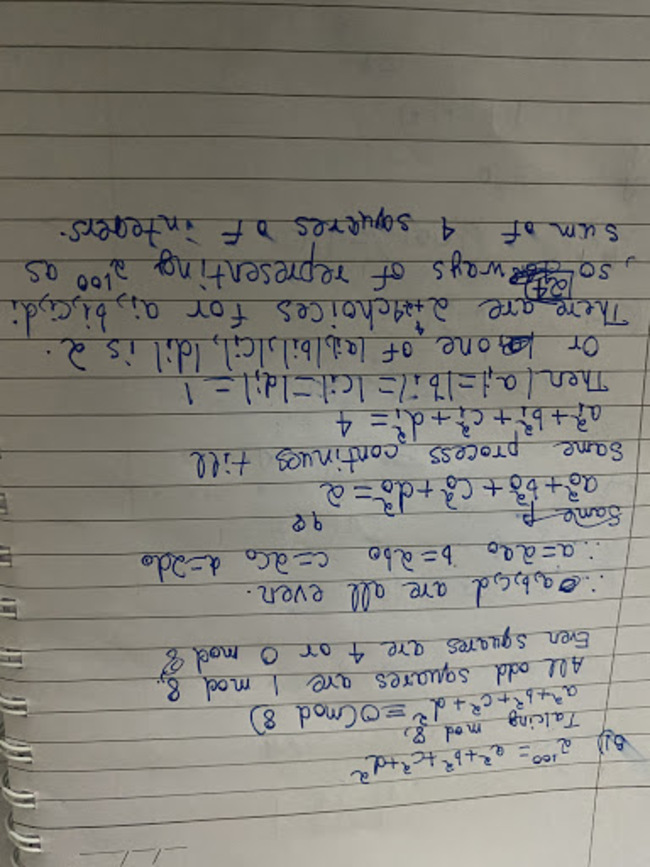 Q1) 2^100 = a²+b²+c²+d²
Taking mod 8,
a²+b²+c²+d² ≡ 0 (mod 8)
All odd squares are 1 mod 8,
Even squares are 4 or 0 mod 8
∴ a,b,c,d are all even.
∴ a=2a₀ b=2b₀ c=2c₀ d=2d₀
Same p
a₀²+b₀²+c₀²+d₀²=2^98
Same process continues till
aᵢ²+bᵢ²+cᵢ²+dᵢ²=4
Then |aᵢ|=|bᵢ|=|cᵢ|=|dᵢ|=1
Or one of |aᵢ|,|bᵢ|,|cᵢ|,|dᵢ| is 2.
There are 2⁴ choices for aᵢ,bᵢ,cᵢ,dᵢ
, so 24 ways of representing 2^100 as
sum of 4 squares of integers.